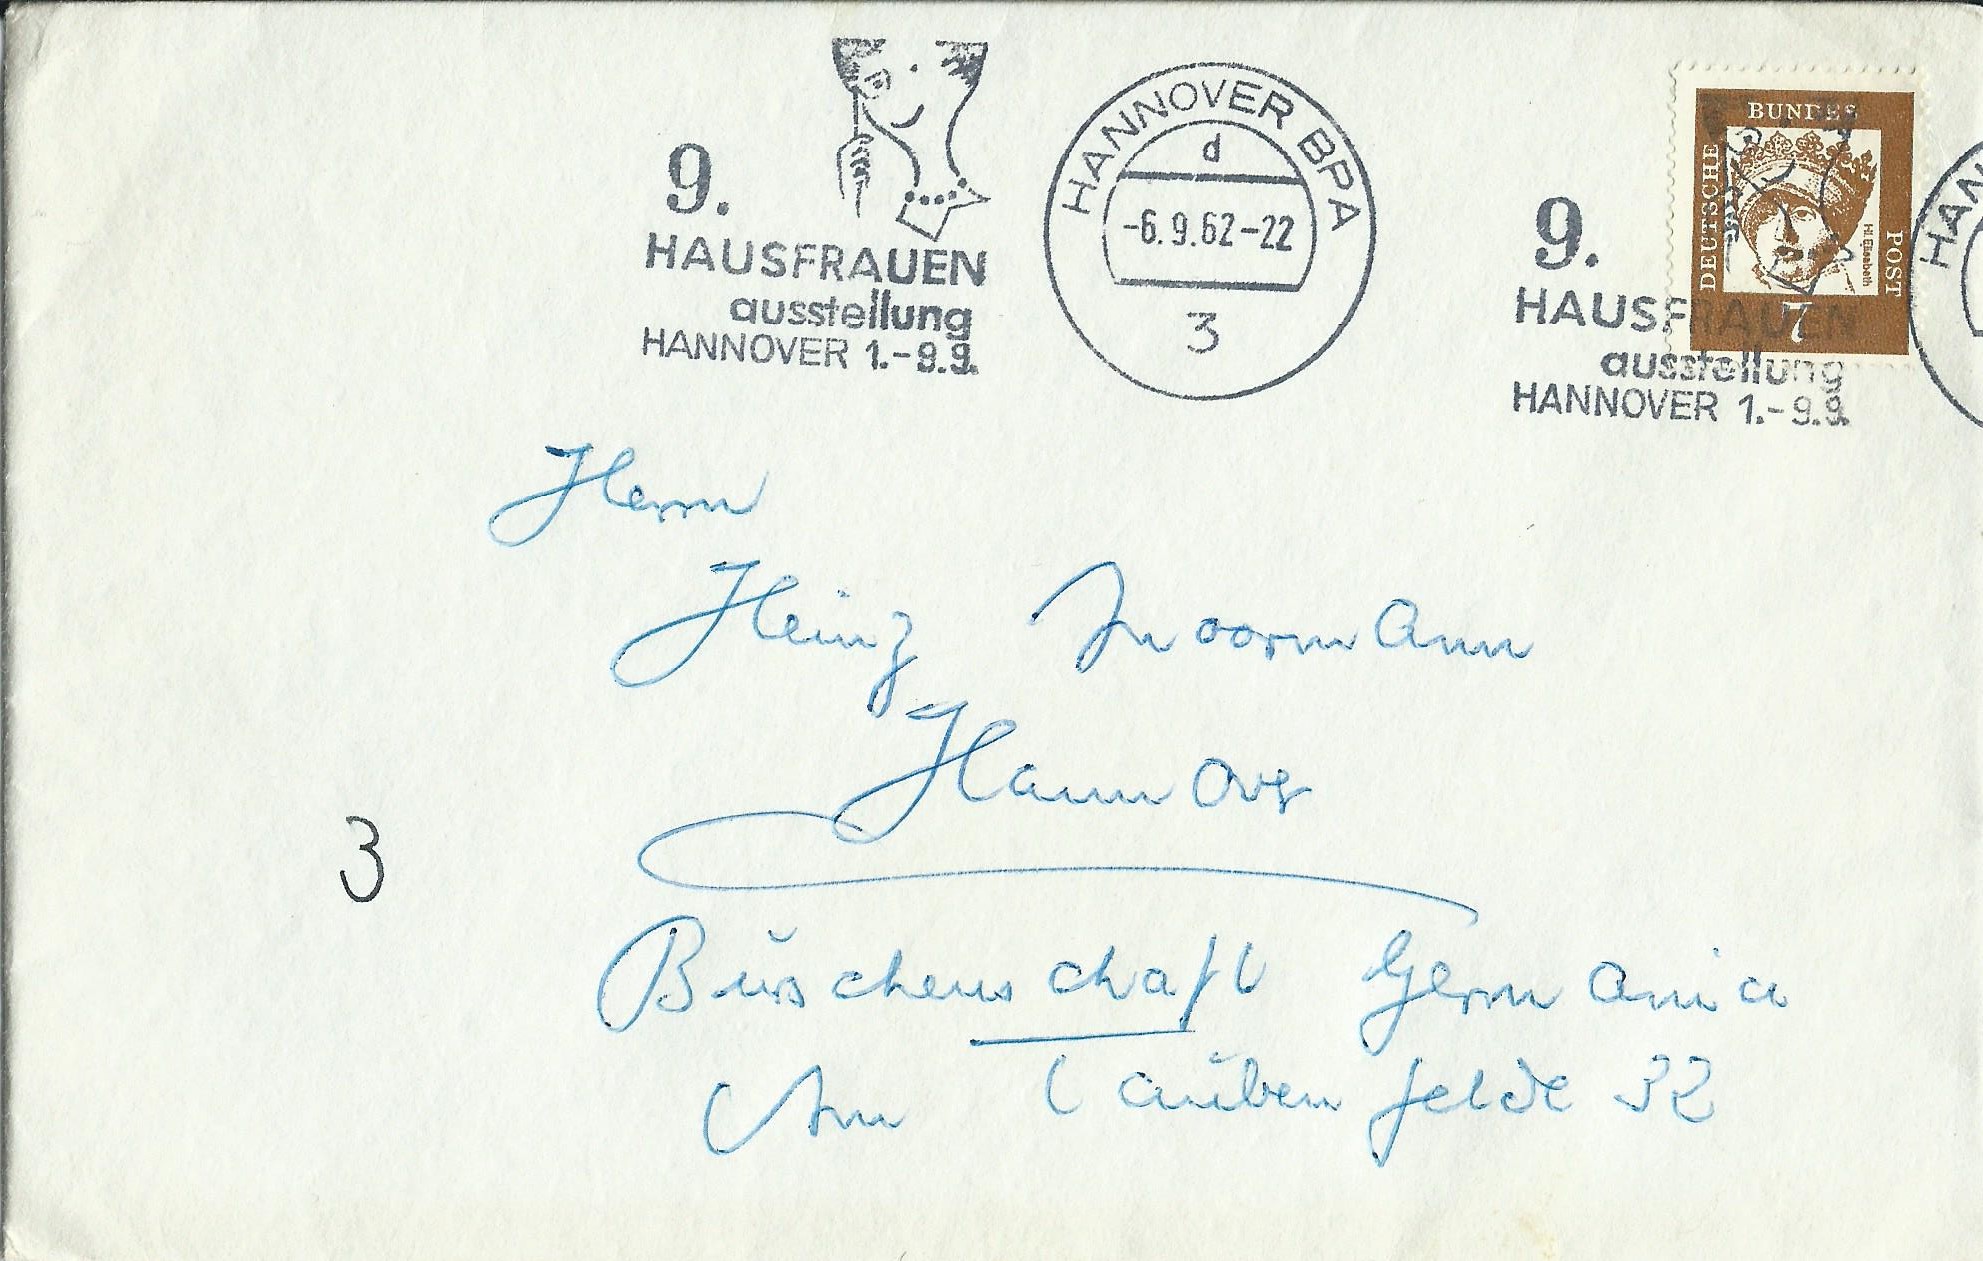 9.
HAUSFRAUEN
ausstellung
HANNOVER 1.-9.9.
HANNOVER BPA
d
-6.9.62-22
3
9.
HAUSFRAUEN
ausstellung
HANNOVER 1.-9.9.
DEUTSCHE BUNDES POST
Hl. Elisabeth
7
HAN
Herrn
Heinz Moormann
Hannover
3
Burschenschaft Germania
Am Taubenfelde 32